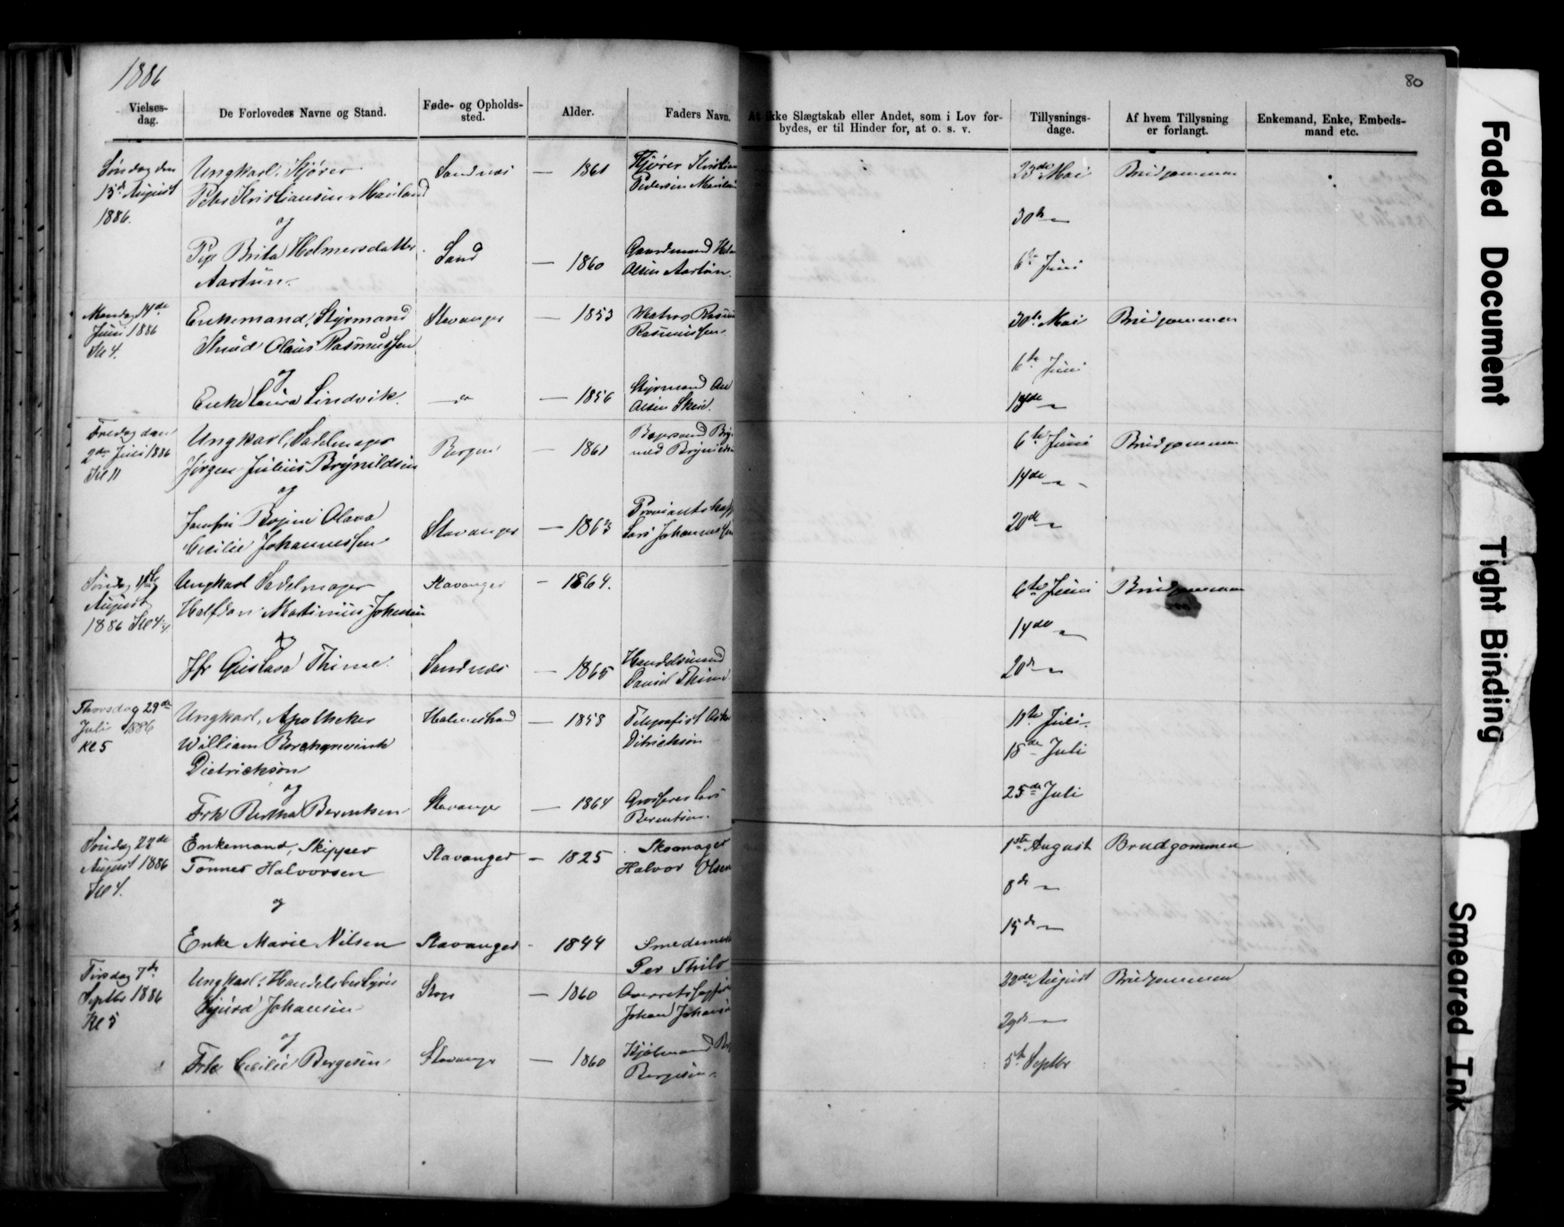 1886
80
Vielses-
dag.
De Forlovedes Navne og Stand.
Føde- og Opholds-
sted.
Alder.
Faders Navn.
At ikke Slægtskab eller Andet, som i Lov for-
bydes, er til Hinder for, at o. s. v.
Tillysnings-
dage.
Af hvem Tillysning
er forlangt.
Enkemand, Enke, Embeds-
mand etc.
Søndag den
15de August
1886.
Ungkarl,
Kristiansen
og
Pige Brita Holmersdatter
Sandnes
Sand
— 1861
— 1860
Kristian
Pedersen
Gaardmand
Olsen
23de Mai
30te —
6te Juni
Brudgommen
Mandag 14de
Juni 1886
Kl 4.
Enkemand, Styrmand
Olaus Rasmussen
og
Enke Laura Lindvik.
Stavanger
— " —
— 1853
— 1856
Rasmussen
Styrmand
Olsen
30te Mai
6te Juni
13de —
Brudgommen
Fredag den
Juni 1886
Kl 11
Ungkarl, Sadelmager
Jørgen Julius Brynildsen
og
Jomfru Olava
Cecilie Johannessen
Bergen
Stavanger
— 1861
— 1863
Lars Johannessen
6te Juni
14de —
20de —
Brudgommen
August
1886
Ungkarl Sadelmager
Halfdan Martinius Johnsen
og
Jfr Gustava Thime
Stavanger
Sandnes
— 1864.
— 1865
Handelsmand
Daniel Thime
6te Juni
14de —
20de —
Brudgommen
Thorsdag 29de
Juli 1886
Kl 5
Ungkarl, Apotheker
William Borchgrevink
Dietrichson
og
Frk Bertha Berentsen
Holmestrand
Stavanger
— 1858
— 1864
Telegrafist
Ditrichson
Lars
Berentsen.
11te Juli
18de Juli
25de Juli
Søndag 22de
August 1886
Kl 4.
Enkemand, Skipper
Tønnes Halvorsen
og
Enke Marie Nilsen
Stavanger
Stavanger
— 1825
- 1844
Skomager
Halvor Olsen
Per Thilo
1ste August
8de —
15de —
Brudgommen
Tirsdag 7de
Septbr 1886
Kl 5
Ungkarl, Handelsbestyrer
Sjurd Johansen
og
Frk Cecilie Bergesen
Stavanger
— 1860
— 1860
Johan
Kjøbmand
Bergesen
22de August
29de —
5te Septbr
Brudgommen
Faded Document
Tight Binding
Smeared Ink